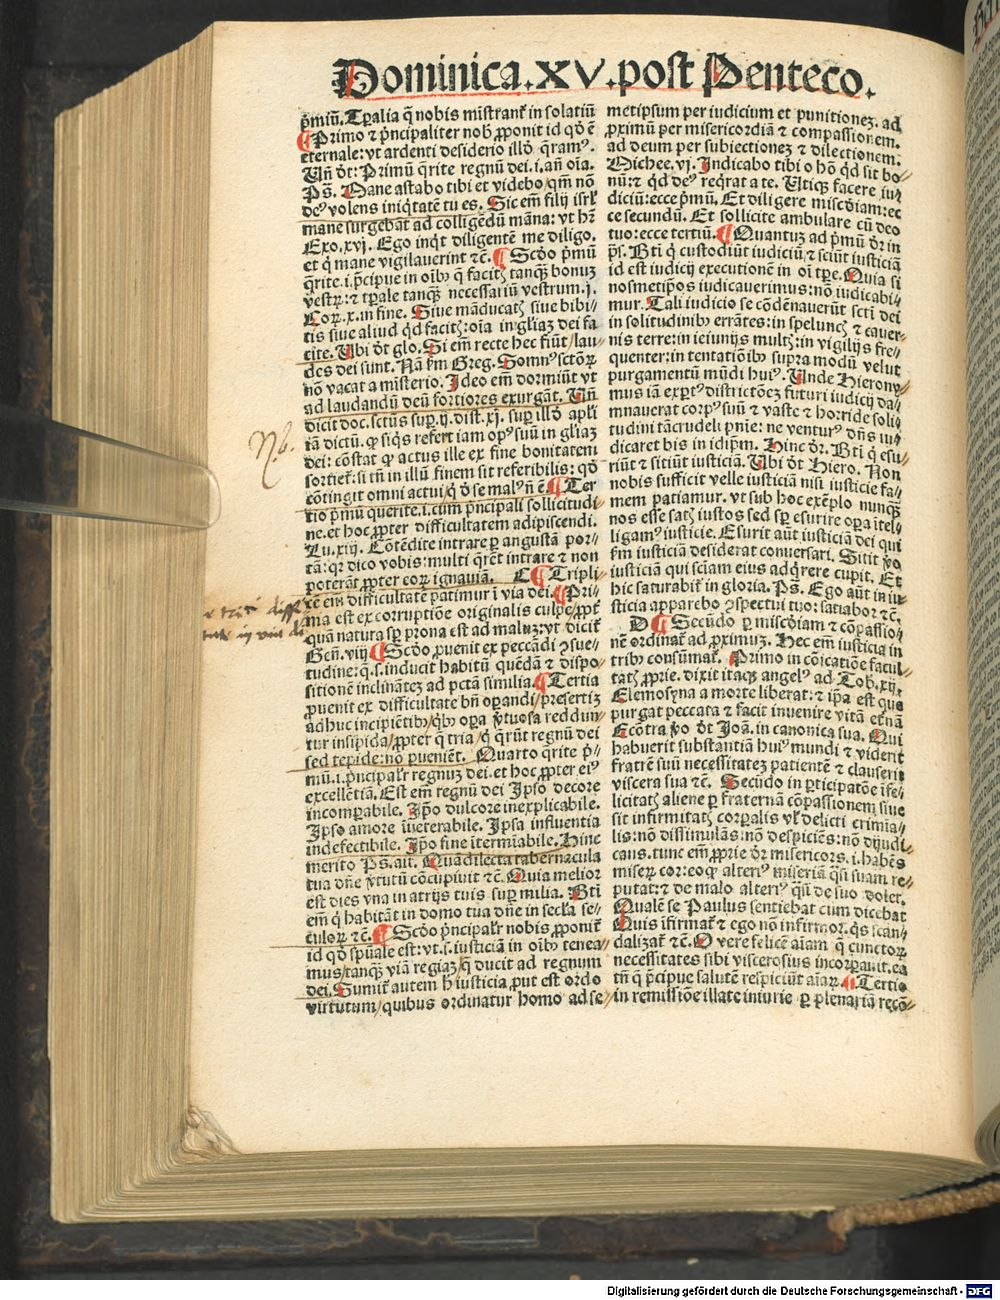 Dominica.XV.post Penteco.
p̄miū.Tp̄alia q̄ nobis mīstranť in solatiū
¶Primo ⁊ p̄ncipaliter nob̄ ꝓponit id qḋ ē
eternale:vt ardenti desiderio illḋ q̄ram⁹.
Vn̄ ḋt:Primū q̄rite regnū dei.i.an̄ oīa.
Ps̄. Mane astabo tibi et videbo/qm̄ nō
de⁹ volens iniq̄tatē tu es. Sic em̄ filij isrl̓
mane surgebāt ad colligēdū māna: vt hr̄
Exo.xvj. Ego inq̇t diligentē me diligo.
et q̄ mane vigilauerint ⁊c̄. ¶Scḋo p̄mū
q̄rite.i.p̄cipue in oīb⁹ q̄ facitꝭ tanq̄ꝫ bonuꝫ
vestꝝ:⁊ tp̄ale tanq̄ꝫ necessariū vestrum.j.
Coꝝ.x.in fine. Siue māducatꝭ siue bibi-
tis siue aliud qḋ facitꝭ:oīa in gl̓iaꝫ dei fa
cite. Vbi ḋt glo. Si em̄ recte hec fiūt/lau/
des dei sunt. Nā ẜm Greg. Somn⁹ sctōꝝ
nō vacat a misterio. Ideo em̄ dormiūt vt
ad laudandū deū fortiores exurgāt. Vn̄
dicit doc.sctūs suꝑ.ij.dist.xj. suꝑ illḋ apl̓i
iā dictū. ꝙ siq̇s refert iam op⁹ suū in gl̓iaꝫ
dei: cōstat ꝙ actus ille ex fine bonitatem
sortieť: si tn̄ in illū finem sit referibilis: qḋ
cōtingit omni actui/q̇ ḋ se mal⁹ n̄ ē ¶Ter
tio p̄mū querite.i.cum p̄ncipali sollicitudi
ne.et hoc ꝓpter difficultatem adipiscendi.
Lu.xiij. Cōtēdite intrare ꝑ angustā por-
tā: qꝛ dico vobis: multi q̄rēt intrare ⁊ non
poterāt ꝓpter coꝝ ignauiā. C ¶Tripli
cē em̄ difficultatē patimur ī via dei. ¶Pri-
ma est ex corruptiōe originalis culpe/ꝓpť
quā natura sꝑ prona est ad maluꝫ:vt diciť
Gen̄.viij ¶Scḋo ꝓuenit ex peccādi ꝯsue-
tudine: q̄.s.inducit habitū quēdā ⁊ dispo
sitionē inclinātēꝫ ad pctā similia. ¶Tertia
ꝓuenit ex difficultate bn̄ oꝑandi/presertiꝫ
adhuc incipiētib⁹/q̇b⁹ oꝑa v̓tuosa reddun/
tur insipida/ꝓpter q̄ tria/q̇ q̄rūt regnū dei
sed tepide:nō ꝑueniēt. Quarto q̄rite p̄-
mū.i.p̄ncipalr̓ regnuꝫ dei.et hoc ꝓpter ei⁹
excellētiā. Est em̄ regnū dei Ipso decore
incomꝑabile. Ip̄o dulcore inexplicabile.
Ipso amore īueterabile. Ipsa influentia
indefectibile. Ip̄o fine īterm̄iabile. Hinc
merito Ps̄. ait. Quā dilecta tabernacula
tua dn̄e v̓tutū cōcupiuit ⁊c̄. Quia melior
est dies vna in atrijs tuis suꝑ milia. Bti̓
em̄ q̇ habitāt in domo tua dn̄e in secl̓a se-
culoꝝ ⁊c̄. ¶Scḋo p̄ncipalr̓ nobis ꝓponiť
id qḋ sp̄uale est: vt.s.iusticiā in oīb⁹ tenea/
mus/tanq̄ꝫ viā regiaꝫ/q̄ ducit ad regnum
dei. Sumiť autem h̄ iusticia ꝓut est ordo
virtutum/quibus ordinatur homo ad se/
metipsum per iudicium et punitioneꝫ. ad
ꝓximū per misericordiā ⁊ compassionem.
ad deum per subiectioneꝫ ⁊ dilectionem:
Michee.vj. Indicabo tibi o hō qḋ sit bo/
nū: ⁊ qḋ de⁹ req̇rat a te. Vtiqꝫ facere iu/
diciū:ecce p̄mū. Et diligere misc̄diam:ec
ce secundū. Et sollicite ambulare cū deo
tuo:ecce tertiū. ¶Quantuꝫ ad p̄mū ḋr in
p̄s. Bti̓ q̇ custodiūt iudiciū/⁊ sciūt iusticiā
id est iudicij executionē in oī tp̄e. Quia si
nosmetip̄os iudicauerimus:nō iudicabi/
mur. Tali iudicio se cōdēnauerūt scti̓ dei
in solitudinib⁹ errātes:in spelūcꝭ ⁊ cauer/
nis terre:in ieiunijs multꝭ:in vigilijs fre/
quenter:in tentatiōib⁹ supra modū velut
purgamentū mūdi hui⁹. Vnde Hierony/
mus iā exꝑt⁹ districtōeꝫ futuri iudicij da/
mnauerat corp⁹ suū ⁊ vaste ⁊ horride soli/
tudini tācrudeli pn̄ie: ne ventur⁹ dn̄s iu/
dicaret bis in idip̄m. Hinc ḋr. Bti̓ q̇ esu/
riūt ⁊ sitiūt iusticiā. Vbi ḋt Hiero. Non
nobis sufficit velle iusticiā nisi iusticie fa/
mem patiamur. vt sub hoc exēplo nunq̄ꝫ
nos esse satꝭ iustos sed sꝑ esurire oꝑa ītel/
ligam⁹ iusticie. Esurit aūt iusticiā dei qui
ẜm iusticiā desiderat conuersari. Sitit v̓o
iusticiā qui sciam eius adq̇rere cupit. Et
hic saturabiť in gloria. Ps̄. Ego aūt in iu/
sticia apparebo ꝯspectui tuo: satiabor ⁊c̄.
D ¶Secūdo ꝑ misc̄diam ⁊ cōpassio/
nē ordinať ad ꝓximuꝫ. Hec em̄ iusticia in
trib⁹ consūmať. Primo in cōicatiōe facul/
tatꝭ ꝓprie. dixit itaqꝫ angel⁹ ad Tob.xij.
Elemosyna a morte liberat: ⁊ ip̄a est que
purgat peccata ⁊ facit inuenire vitā et̄nā
Ecōtra v̓o ḋt Ioā. in canonica sua. Qui
habuerit substantiā hui⁹ mundi ⁊ viderit
fratrē suū necessitateꝫ patientē ⁊ clauserit
viscera sua ⁊c̄. Secūdo in ꝑticipatōe īfe/
licitatꝭ aliene ꝑ fraternā cōpassionem siue
sit infirmitatꝭ corꝑalis vl̓ delicti crimia/
lis:nō dissimulās:nō despiciēs:nō dijudi/
cans.tunc em̄ ꝓprie ḋr misericors.i.habēs
miseꝝ cor:eo ꝙ alteri⁹ miseriā q̄si suam re/
putat:⁊ de malo alteri⁹ q̄si de suo dolet.
Qualē se Paulus sentiebat cum dicebat
Quis īfirmať ⁊ ego nō infirmor.q̇s scan/
dalizať ⁊c̄. O vere felicē aīam q̄ cunctoꝝ
necessitates sibi viscerosius incorꝑauit.ea
tn̄ q̄ p̄cipue salutē respiciūt aīaꝝ. ¶Tertio
in remissiōe illate iniurie ꝑ plenariā recō/
Nb.
Digitalisierung gefördert durch die Deutsche Forschungsgemeinschaft - DFG